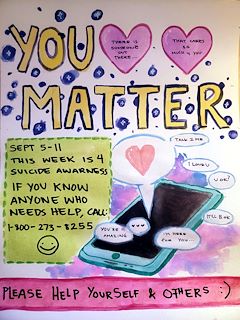 YOU
THERE IS
SOMEONE
OUT
THERE
THAT CARES
SO
MUCH 4 YOU
MATTER
SEPT 5-11
THIS WEEK IS 4
SUICIDE AWARNESS
IF YOU KNOW
ANYONE WHO
NEEDS HELP, CALL:
1-800-273-8255
I LOVE U
U OK?
IT'LL B OK
YOU'RE
AMAZING
I'M HERE
FOR YOU...
PLEASE HELP YOURSELF & OTHERS :)